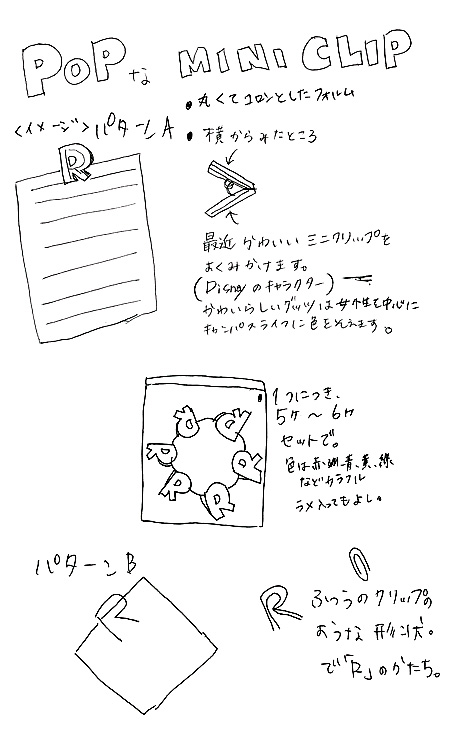 POPな MINI CLIP
・丸くてコロンとしたフォルム
<イメージ>パターンA
・横からみたところ
R
最近かわいいミニクリップを
よくみかけます。
(Disneyのキャラクター)
かわいらしいグッツは女性を中心に
キャンパスライフに色をそえます。
・1つにつき、
5ケ〜6ケ
セットで。
色は赤、青、黄、緑
などカラフル
ラメ入ってもよし。
R R R R R R
パターンB
R
R
ふつうのクリップの
ような形状。
で「R」のかたち。